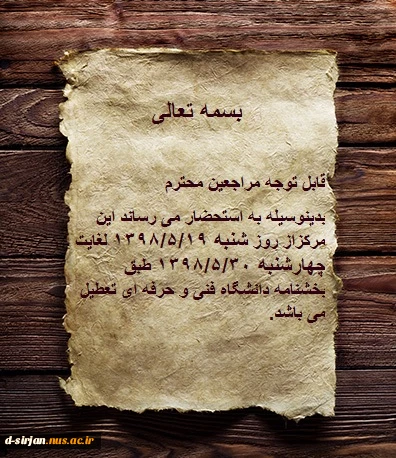 بسمه تعالی
قابل توجه مراجعین محترم
بدینوسیله به استحضار می رساند این
مرکزاز روز شنبه ۱۳۹۸/۵/۱۹ لغایت
چهارشنبه ۱۳۹۸/۵/۳۰ طبق
بخشنامه دانشگاه فنی و حرفه ای تعطیل
می باشد.
d-sirjan.nus.ac.ir